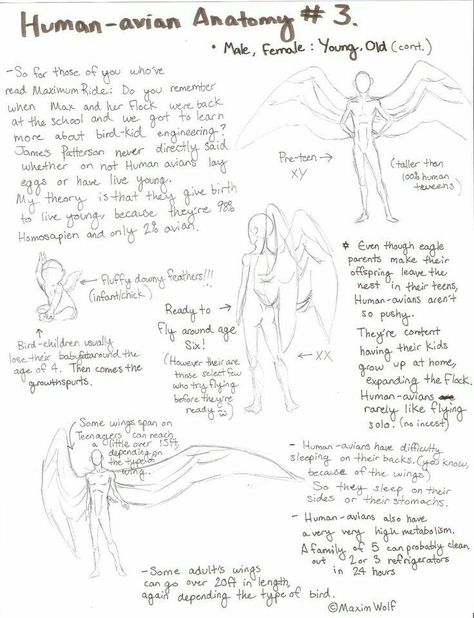 Human-avian Anatomy # 3.
• Male, Female : Young, Old (cont.)
-So for those of you who've
read Maximum Ride: Do you remember
when Max and her Flock were back
at the school and we got to learn
more about bird-kid engineering?
James Patterson never directly said
whether on not Human avians lay
eggs or have live young.
My theory is that they give birth
to live young, because they're 98%
Homosapien and only 2% avian.
Pre-teen
XY
(taller than
100% human
tweens)
Fluffy downy feathers!!!
(infant/chick)
Bird-children usually
lose their baby around the
age of 4. Then comes the
growthspurts.
Ready to
Fly around age
Six!
(However their are
those select few
who try flying
before they're
ready
XX
* Even though eagle
parents make their
offspring leave the
nest in their teens,
Human-avians aren't
so pushy.
They're content
having their kids
grow up at home,
expanding the Flock.
Human-avians
rarely like flying
solo. (no incest)
Some wings span on
Teenagers can reach
a little over 15ft,
depending on
the type of
wing.
- Human-avians have difficulty
sleeping on their backs. (you know,
because of the wings)
So they sleep on their
sides or their stomachs.
- Human-avians also have
a very very high metabolism.
A family of 5 can probably clean
out 2 or 3 refrigerators
in 24 hours
-Some adult's wings
can go over 20ft in length,
again depending the type of bird.
©Maxim Wolf